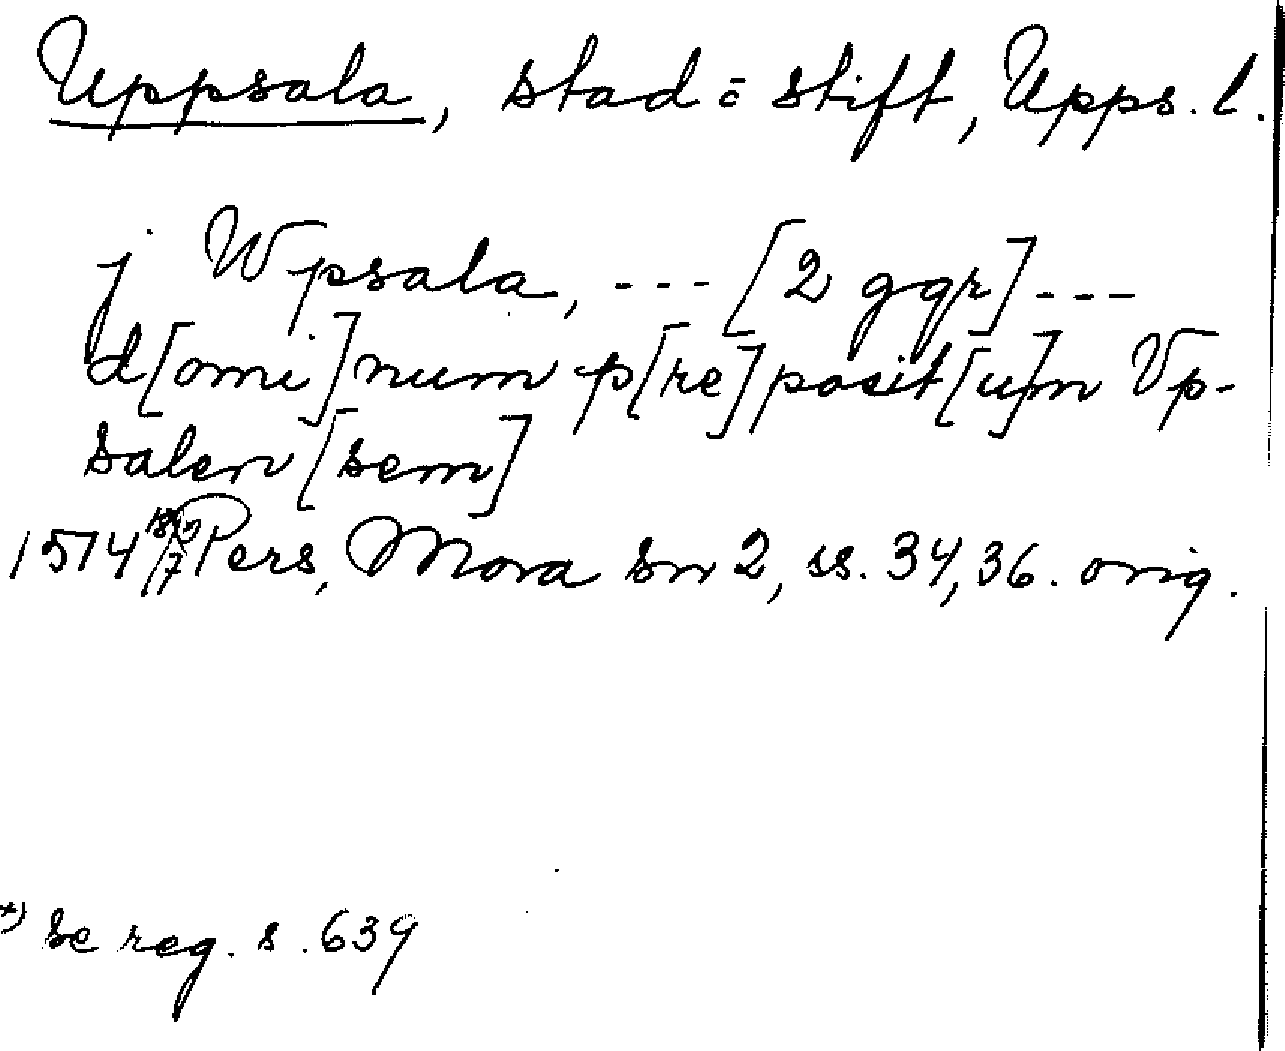 Uppsala, stad o stift, Upps. l.
j Wpsala, --- [2 ggr] ---
d[omi]num p[re]posit[u]m Vp-
salen[sem]
1514 /7 Pers, Mora sn 2, ss. 34, 36. orig.
*) se reg. s. 639